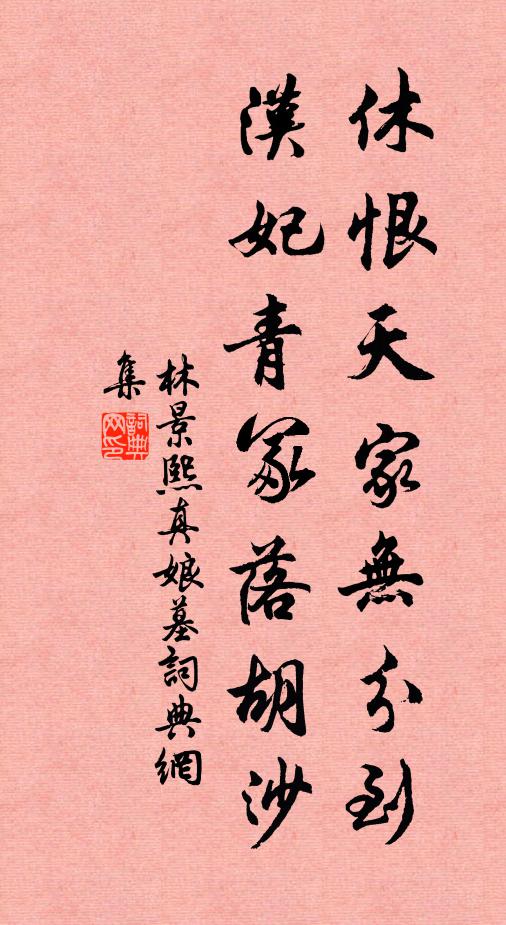 休恨天家無分到
漢妃青冢落胡沙
林景熙真娘墓詞典網
集
詞典網印